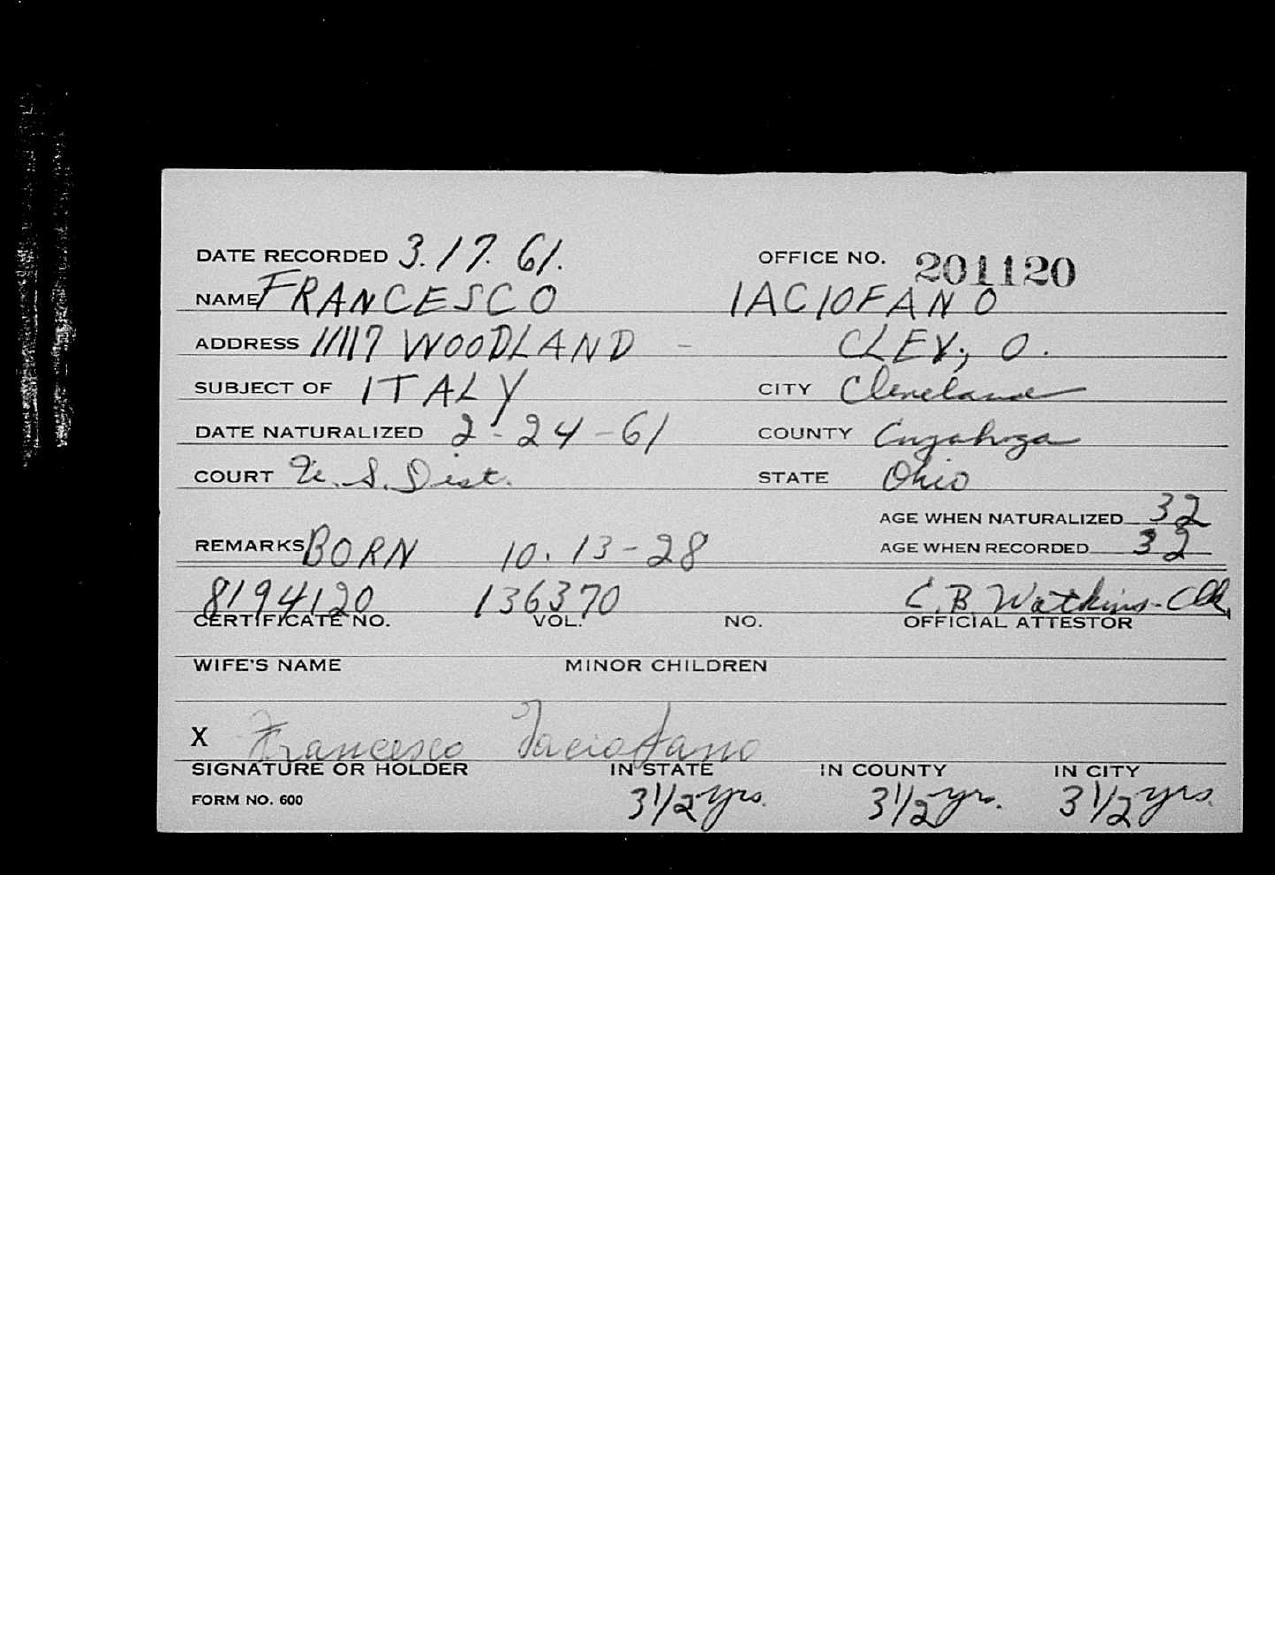 DATE RECORDED 3.17.61. OFFICE NO. 201120
NAME FRANCESCO IACIOFANO
ADDRESS 11117 WOODLAND - CLEV; O.
SUBJECT OF ITALY CITY Cleveland
DATE NATURALIZED 2-24-61 COUNTY Cuyahoga
COURT U. S. Dist. STATE Ohio
AGE WHEN NATURALIZED 32
REMARKS BORN 10.13-28 AGE WHEN RECORDED 32
8194120 136370 C.B. Watkins-Clk
CERTIFICATE NO. VOL. NO. OFFICIAL ATTESTOR
WIFE'S NAME MINOR CHILDREN
X Francesco Iaciofano
SIGNATURE OR HOLDER IN STATE IN COUNTY IN CITY
FORM NO. 600 3 1/2 yrs. 3 1/2 yr. 3 1/2 yrs.